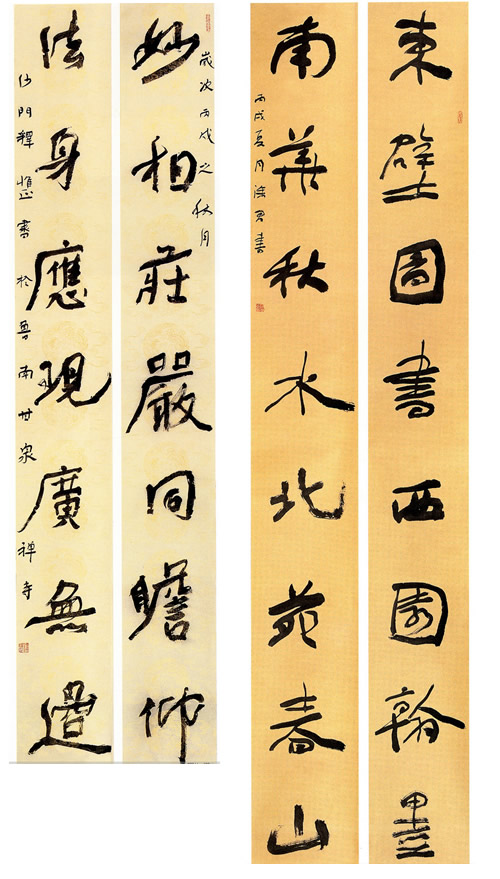 東壁圖書西園翰墨
南華秋水北苑春山
丙戌夏月書
歲次丙戌之秋月
妙相莊嚴同瞻仰
法身應現廣無邊
沙門釋書於魯南甘泉禪寺